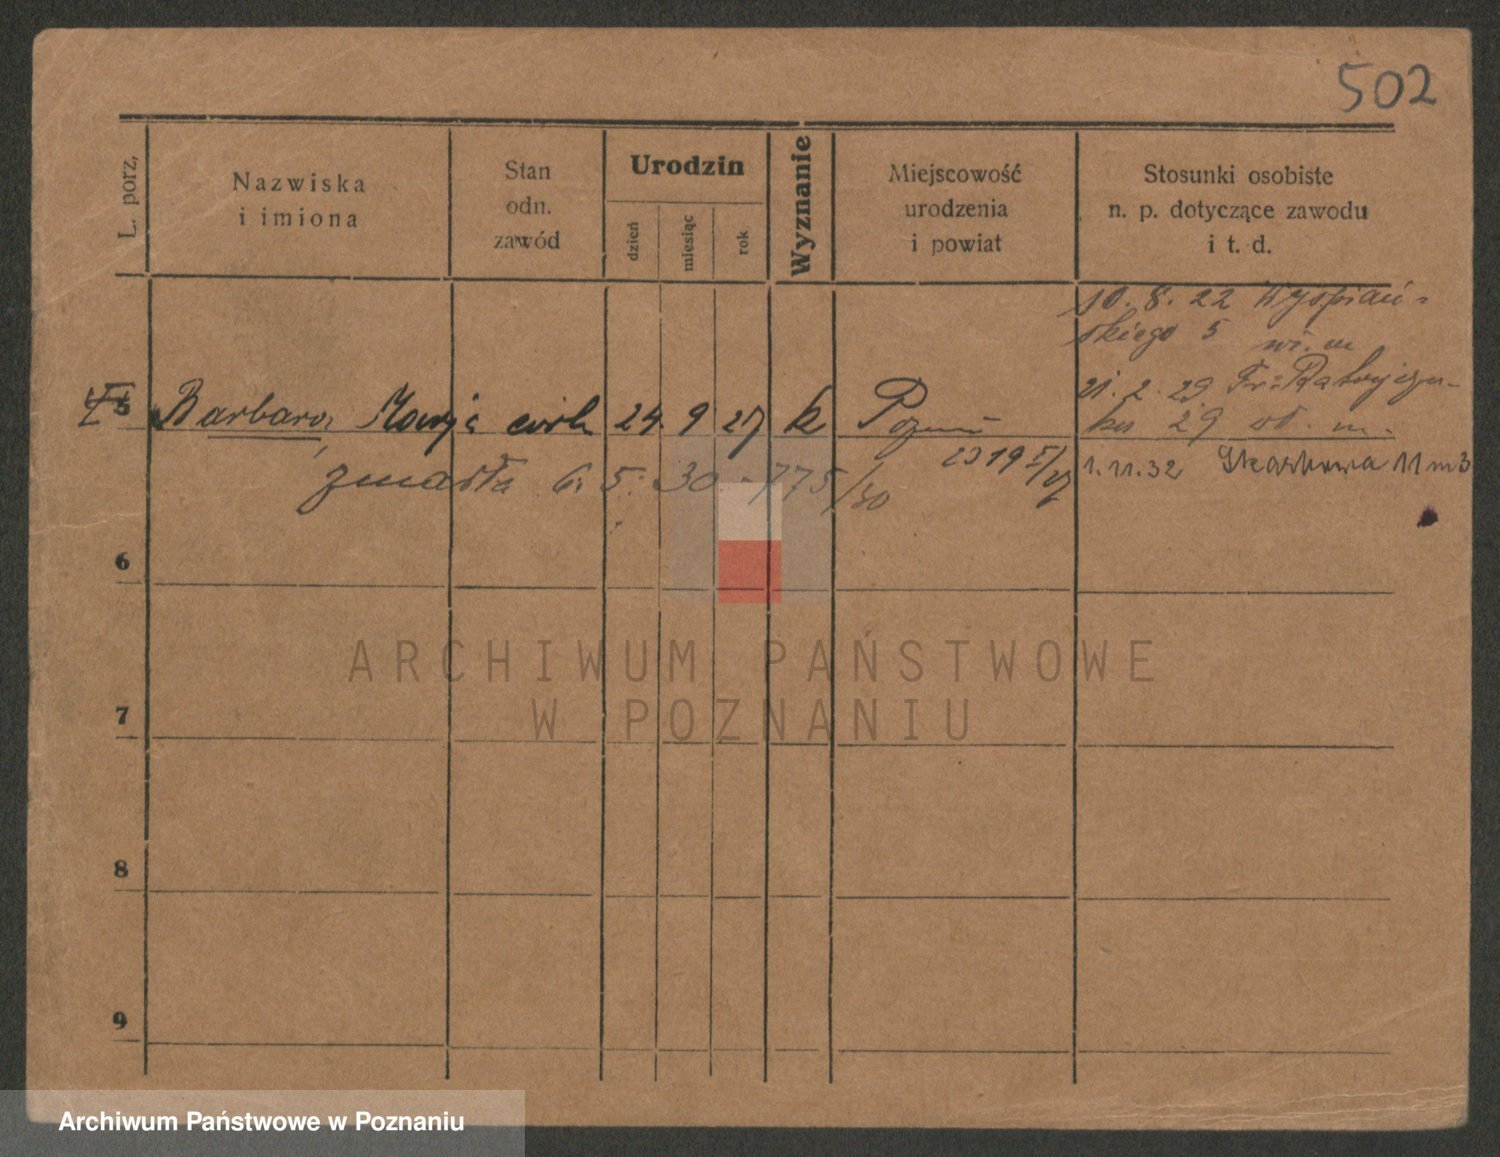 502
L. porz.
Nazwiska
i imiona
Stan
odn.
zawód
Urodzin
dzień
miesiąc
rok
Wyznanie
Miejscowość
urodzenia
i powiat
Stosunki osobiste
n. p. dotyczące zawodu
i t. d.
10. 8. 22 Wyspiań-
skiego 5 wi. m
Barbara Marja córk 24 9 27 k
21. 2. 29 Fr. Ratajcza-
ka 29 wł. m.
zmarła 6. 5. 30 - 775/30
1.11.32 Skarbowa 11 m 3
6
7
8
9
ARCHIWUM PAŃSTWOWE
W POZNANIU
Archiwum Państwowe w Poznaniu